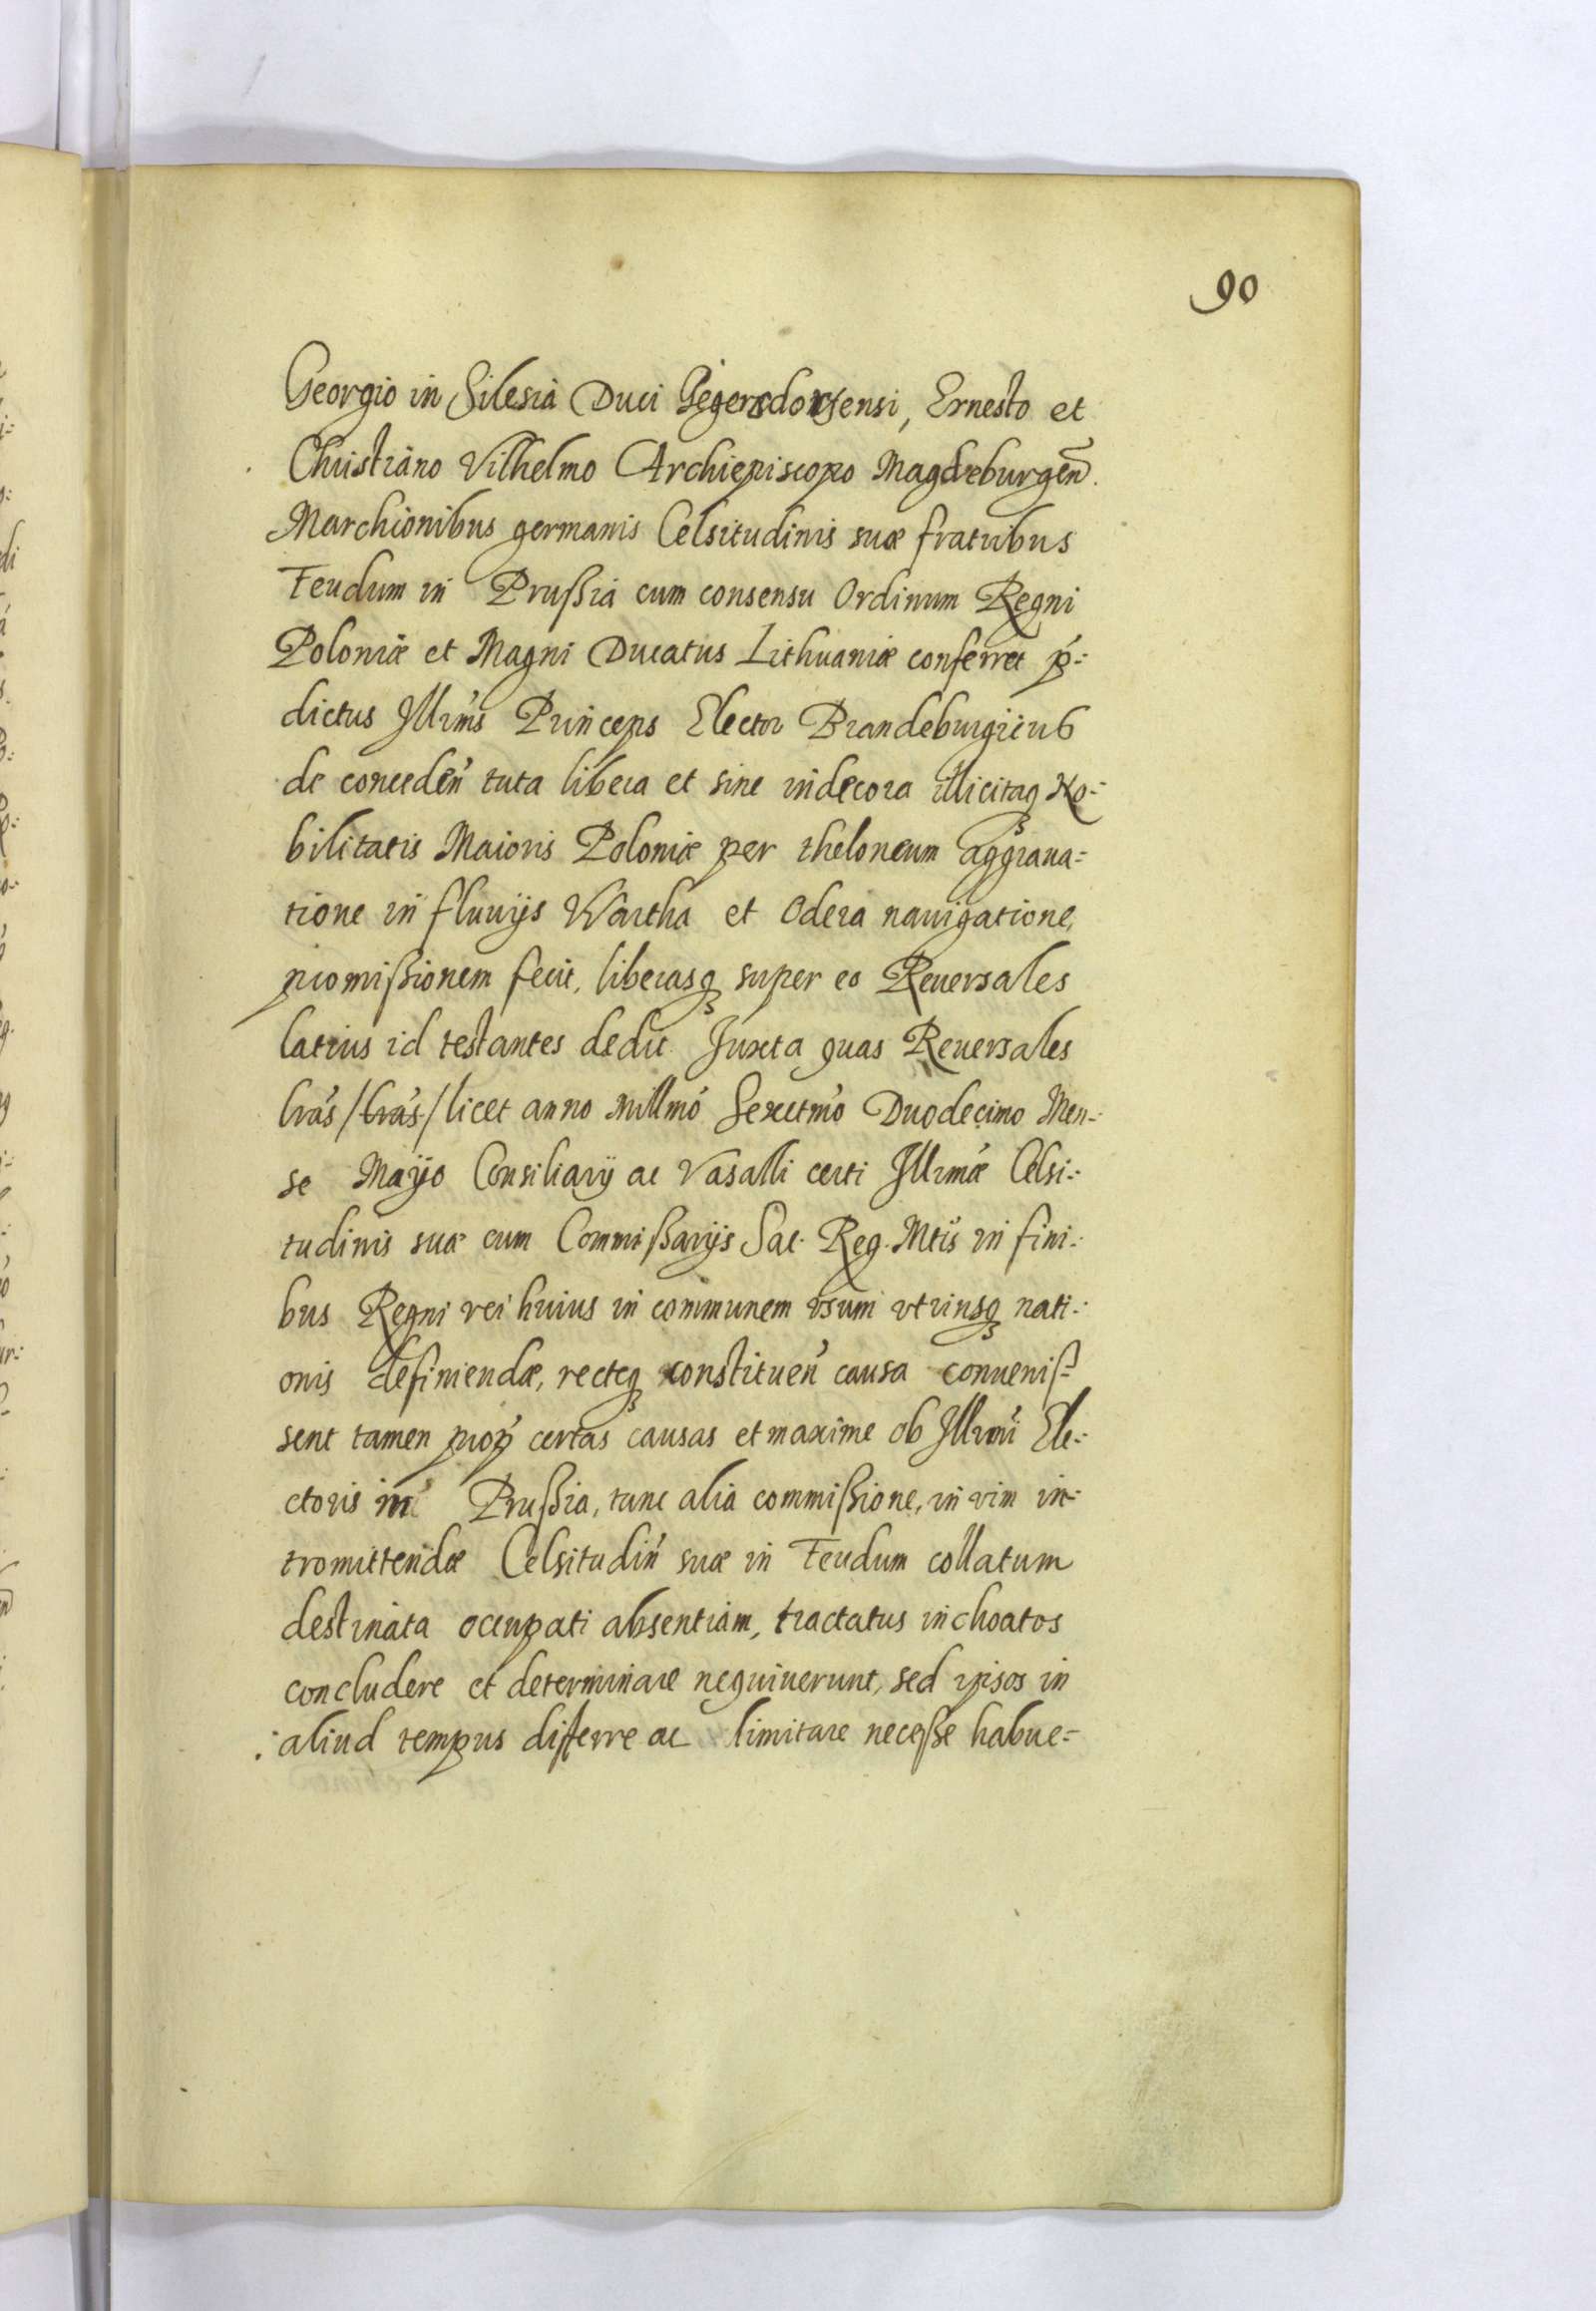 90
Georgio in Silesia Duci Gegersdorfensi, Ernesto et
Christiano Vilhelmo Archiepiscopo Magdeburgen̄.
Marchionibus germanis Celsitudinis suæ fratribus
Feudum in Prußia cum consensu Ordinum Regni
Poloniæ et Magni Ducatus Lithuaniæ conferret p̓-
dictus Illrm̓s Princeps Elector Brandeburgicus
de conceden̓ tuta libera et sine indecora illicitaq̨ No-
bilitatis Maioris Poloniæ per theloneum aggraua-
tione in fluuijs Wartha et Odera nauigatione,
promißionem fecit, liberasq̨ super eo Reuersales
latius id testantes dedit Juxta quas Reuersales
lrãs /lrãs/ licet anno Millmó Sexctmó Duodecimo Men-
se Mayo Consiliarij ac Vasalli certi Illrmæ Celsi-
tudinis suæ cum Commißarijs Sac. Reg. Mtis in fini-
bus Regni rei huius in communem vsum vtriusq̨ nati-
onis definiendæ, recteq̨ constituen̓ causa conueniß-
sent tamen prop̓ certas causas et maxime ob Illrmi Ele-
ctoris in Prußia, tunc alia commißione, in vim in-
tromittendæ Celsitudin̓ suæ in Feudum collatum
destinata occupati absentiam, tractatus inchoatos
concludere et determinare nequiuerunt, sed ipsos in
aliud tempus differre ac limitare neceße habue-